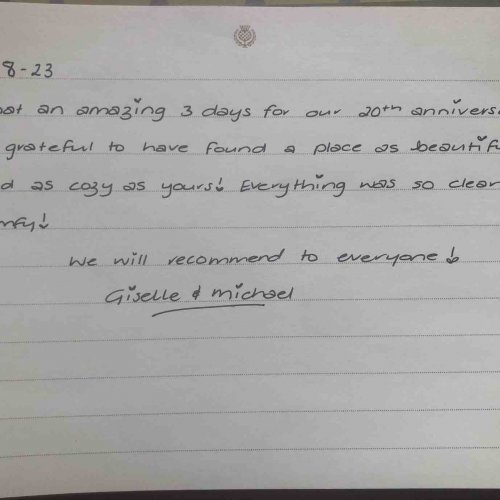 8-23
at an amazing 3 days for our 20th annivers
grateful to have found a place as beautif
d as cozy as yours! Everything was so clean
mfy!
We will recommend to everyone!
Giselle & Michael